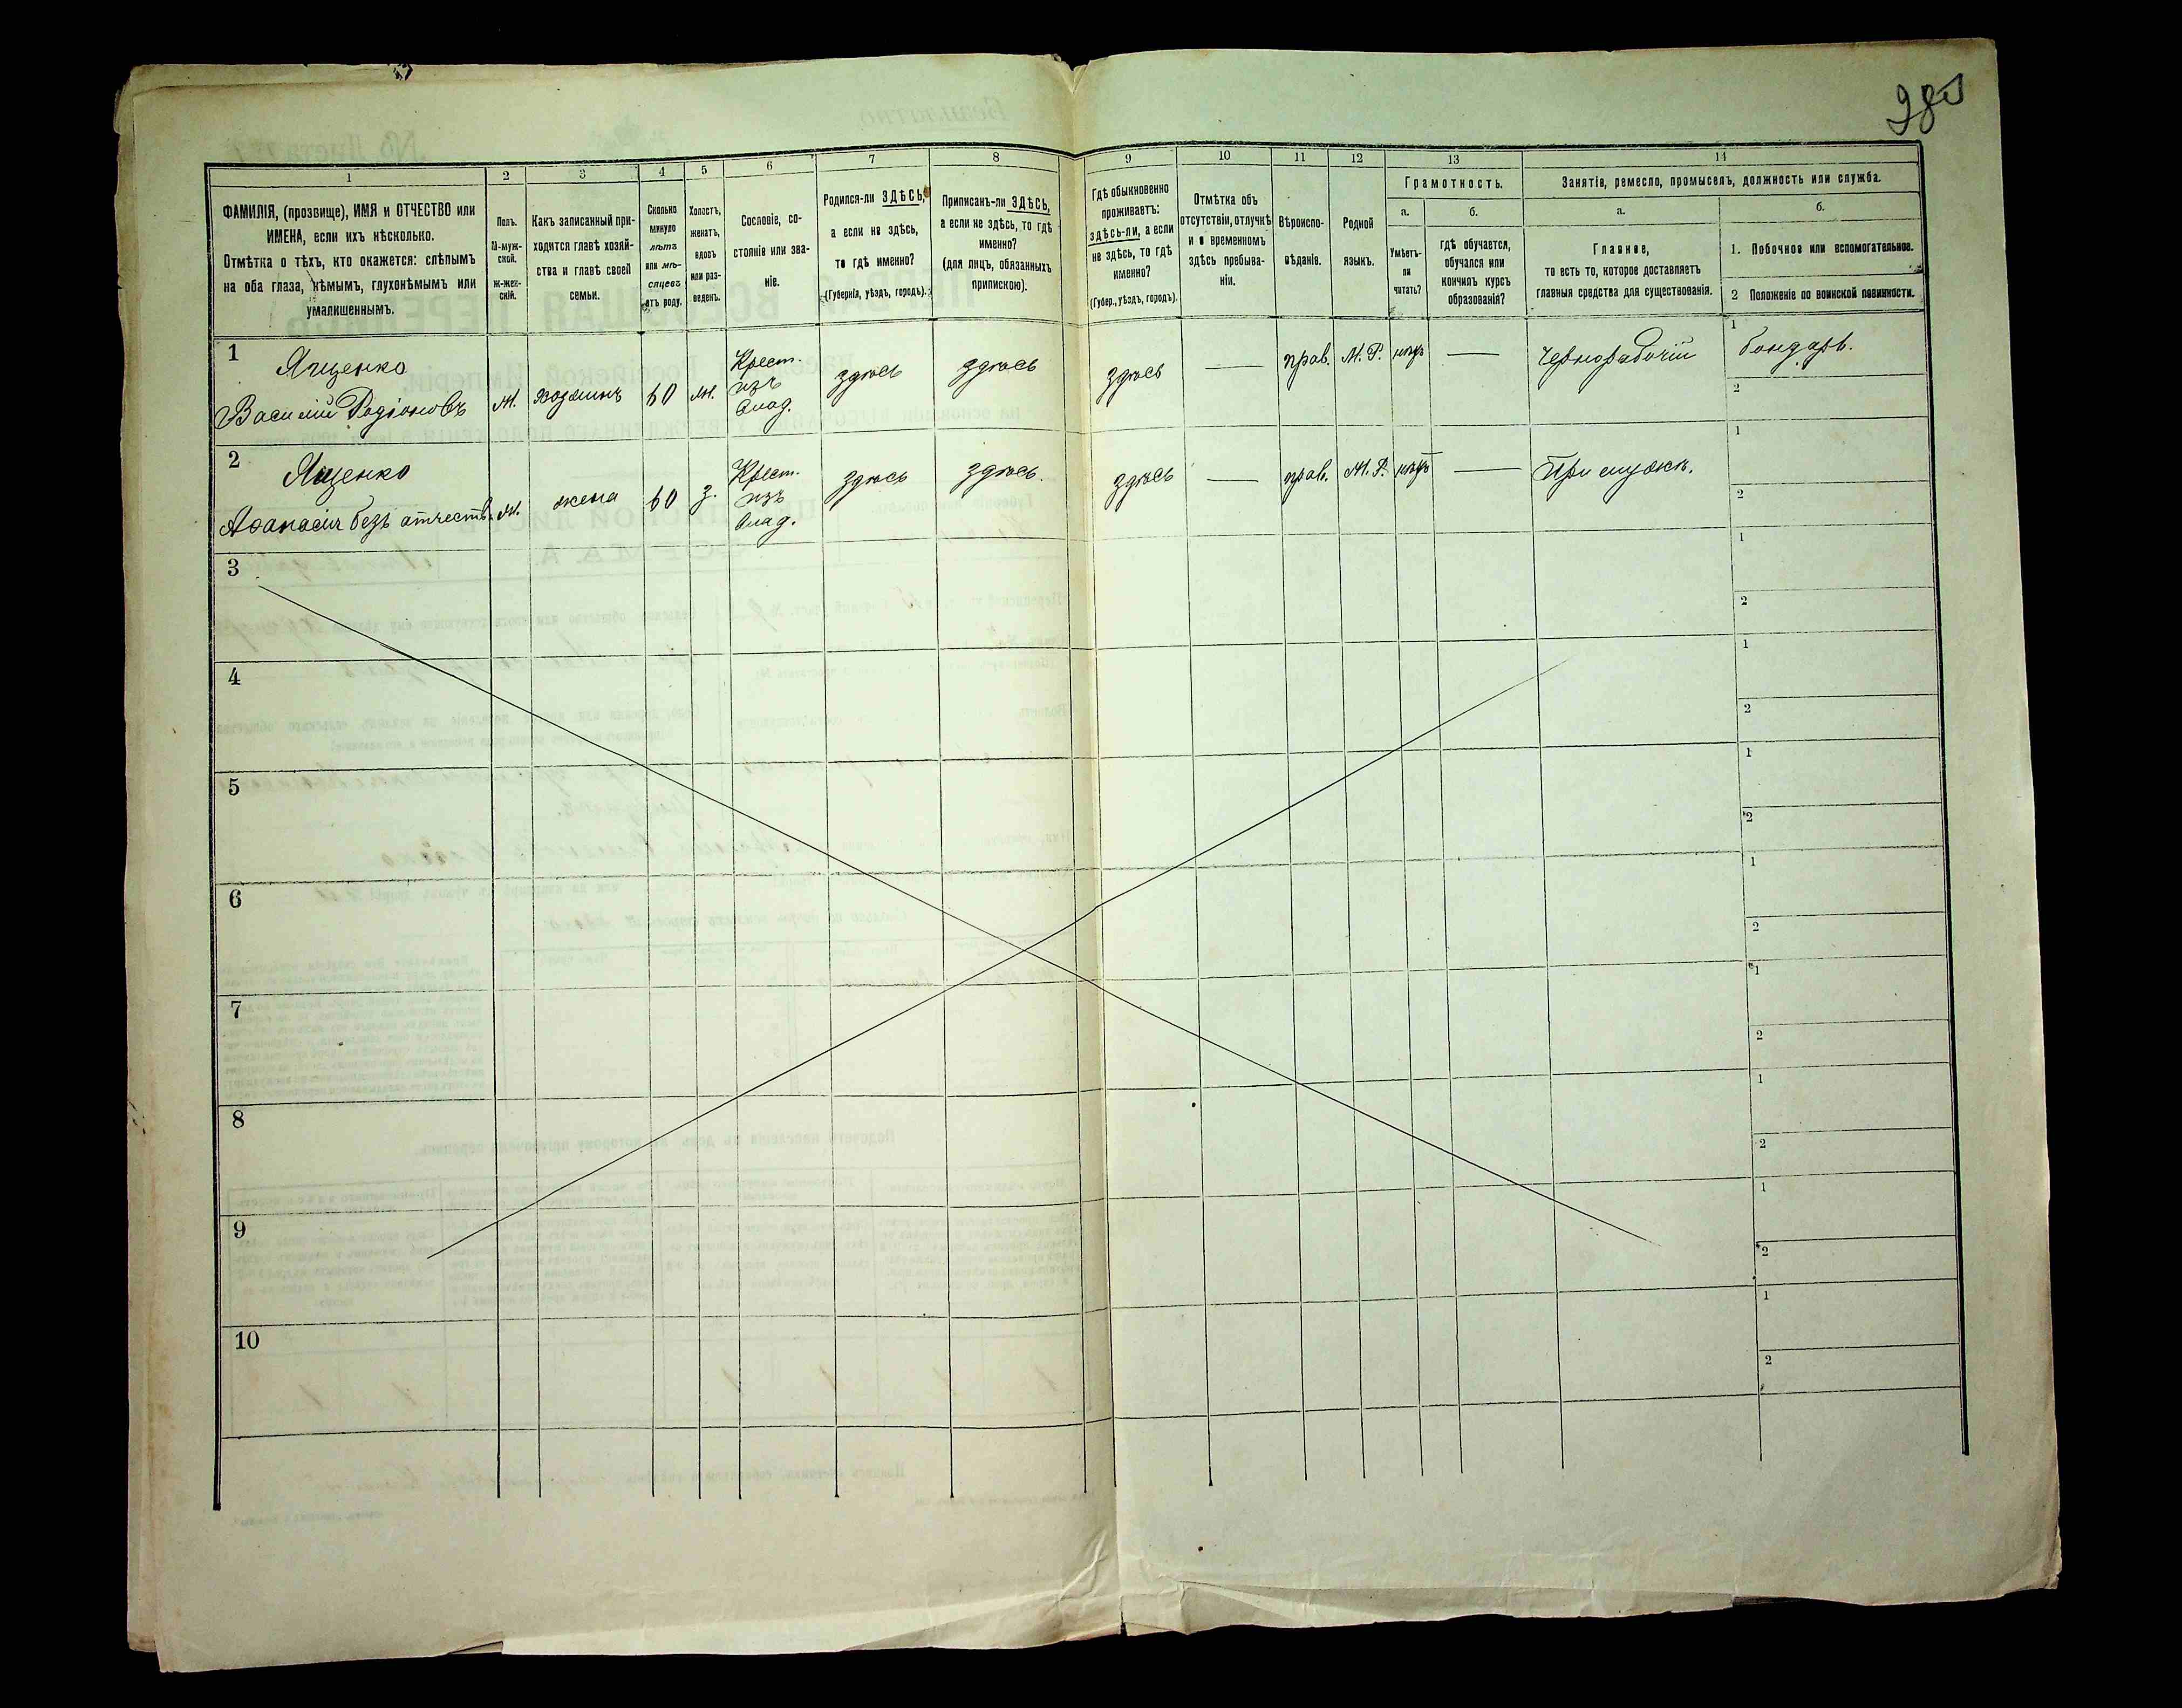 980
1 2 3 4 5 6 7 8 9 10 11 12 13 14
ФАМИЛІЯ, (прозвище), ИМЯ и ОТЧЕСТВО или
ИМЕНА, если ихъ нѣсколько.
Отмѣтка о тѣхъ, кто окажется: слѣпымъ
на оба глаза, нѣмымъ, глухонѣмымъ или
умалишеннымъ.
Полъ.
М-муж-
ской.
ж-жен-
скій.
Какъ записанный при-
ходится главѣ хозяй-
ства и главѣ своей
семьи.
Сколько
минуло
лѣтъ
или мѣ-
сяцевъ
отъ роду.
Холостъ,
женатъ,
вдовъ
или раз-
веденъ.
Сословіе, со-
стояніе или зва-
ніе.
Родился-ли ЗДѢСЬ,
а если не здѣсь,
то гдѣ именно?
(Губернія, уѣздъ, городъ).
Приписанъ-ли ЗДѢСЬ,
а если не здѣсь, то гдѣ
именно?
(для лицъ, обязанныхъ
припискою).
Гдѣ обыкновенно
проживаетъ:
здѣсь-ли, а если
не здѣсь, то гдѣ
именно?
(Губер., уѣздъ, городъ).
Отмѣтка объ
отсутствіи, отлучкѣ
и о временномъ
здѣсь пребыва-
ніи.
Вѣроиспо-
вѣданіе.
Родной
языкъ.
Грамотность.
а.
Умѣетъ-
ли
читать?
б.
гдѣ обучается,
обучался или
кончилъ курсъ
образованія?
Занятіе, ремесло, промыселъ, должность или служба.
а.
Главное,
то есть то, которое доставляетъ
главныя средства для существованія.
б.
1. Побочное или вспомогательное.
2 Положеніе по воинской повинности.
1
Ященко
Василій Родіоновъ
м.
хозяинъ
60
ж.
Крест.
изъ
влад.
здѣсь
здѣсь
здѣсь
—
прав.
М. Р.
нѣтъ
—
Чернорабочій
1
бондарь.
2
2
Ященко
Афанасія безъ отчества
ж.
жена
60
з.
Крест.
изъ
влад.
здѣсь
здѣсь.
здѣсь
—
прав.
М. Р.
нѣтъ
—
При мужѣ.
1
2
3
1
2
4
1
2
5
1
2
6
1
2
7
1
2
8
1
2
9
1
2
10
1
2